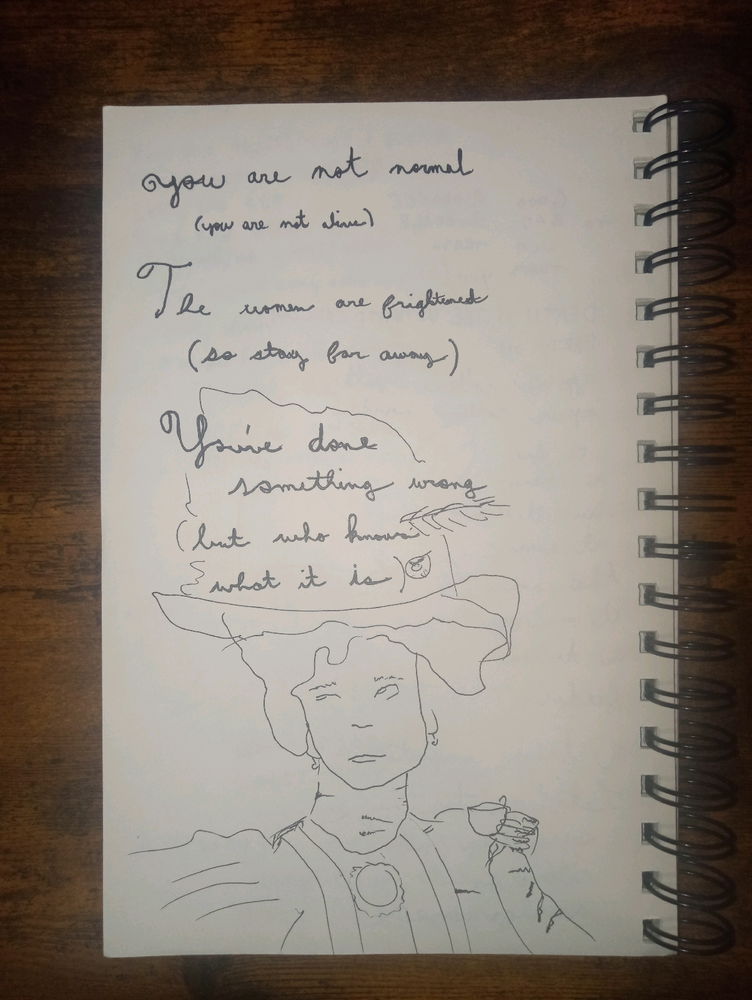 You are not normal
(you are not alive)
The women are frightened
(so stay far away)
You've done
something wrong
(but who knows
what it is)